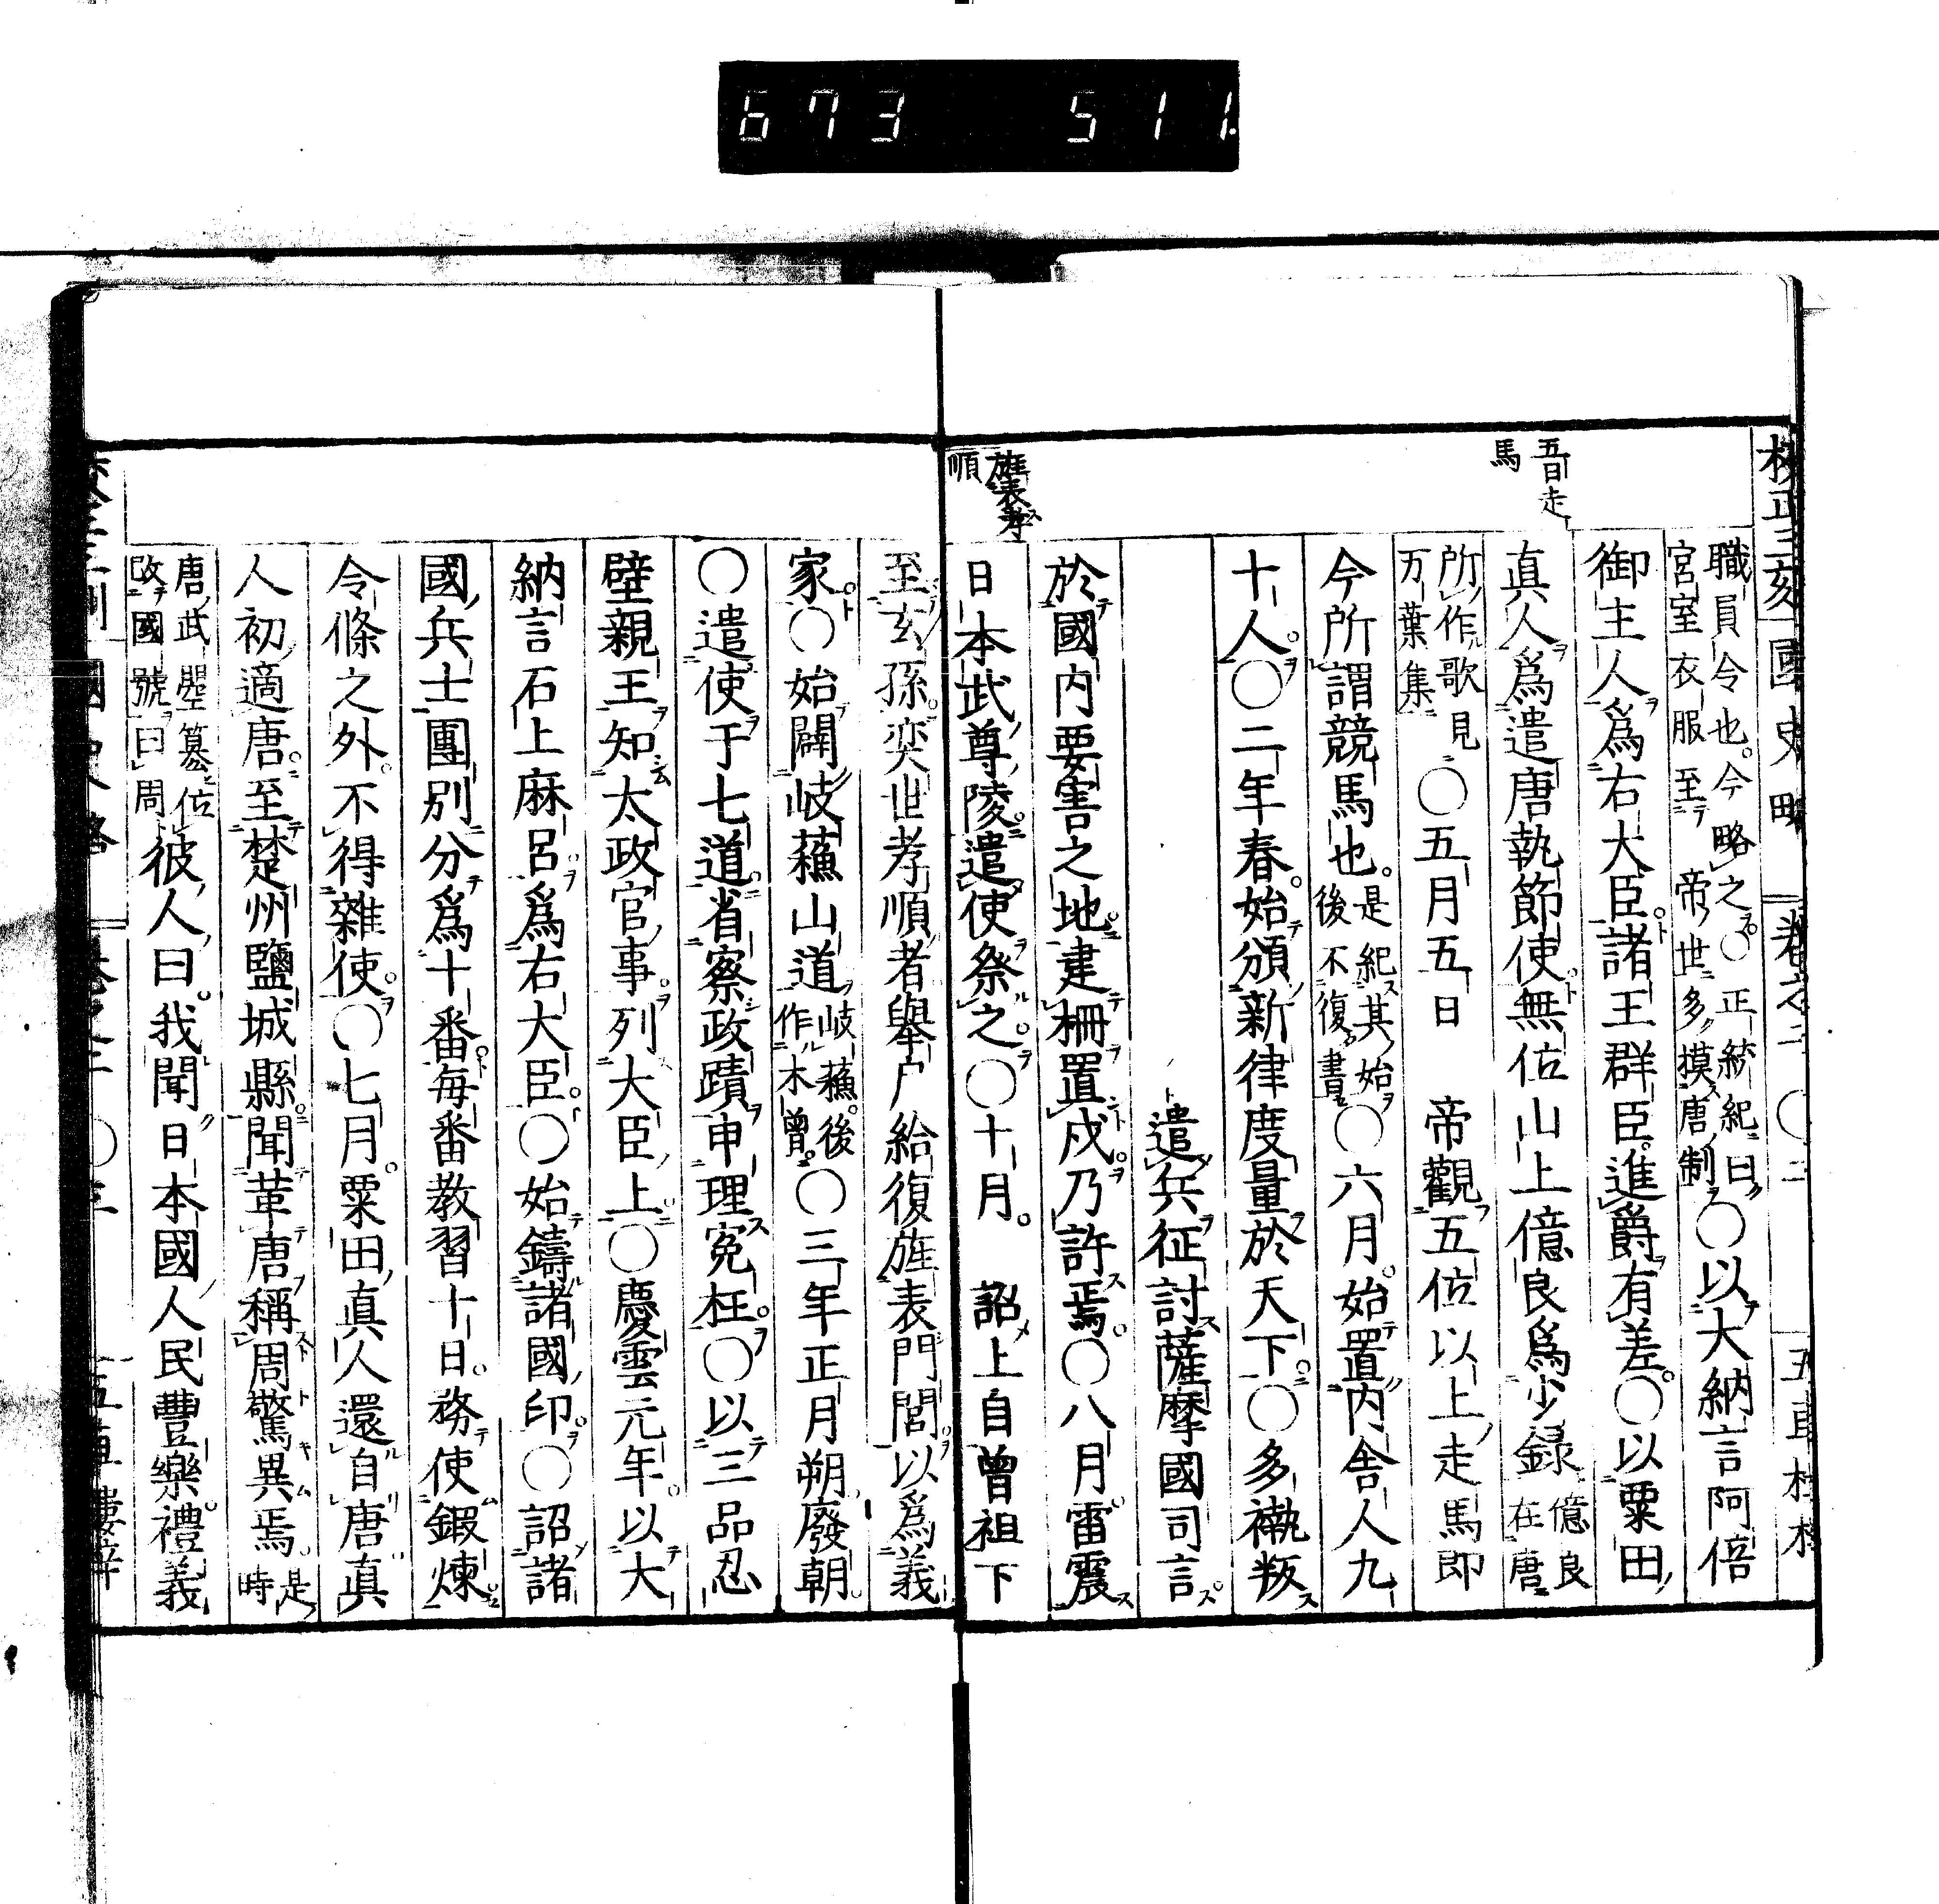 673 511
校正三刻 國史略 卷之二 〇二
五日走
馬
旌表孝
順
職員令也。今略之〇正統紀曰
宮室衣服至帝世多摸唐制〇以大納言阿倍
御主人爲右大臣。諸王群臣進爵有差。〇以粟田
真人爲遣唐執節使無位山上億良爲少録億良
在唐
所作歌見
万葉集〇五月五日 帝觀五位以上走馬即
今所謂競馬也。是紀其始
後不復書〇六月。始置内舎人九
十人。〇二年春。始頒新律度量於天下。〇多褹叛
遣兵征討薩摩國司言
於國内要害之地建柵置戍。乃許焉。〇八月雷震
日本武尊陵遣使祭之。〇十月。 詔上自曾祖下
至玄孫奕世孝順者舉户給復旌表門閭以爲義
家。〇始闢岐蘓山道岐蘓。後
作木曽。〇三年正月朔廢朝
〇遣使于七道省察政蹟申理寃枉。〇以三品忍
壁親王知太政官事。列大臣上〇慶雲元年。以大
納言石上麻呂爲右大臣。〇始鑄諸國印。〇詔諸
國兵士團別分爲十番毎番教習十日。務使鍜煉
令條之外。不得雜使。〇七月。粟田真人還自唐真
人初適唐。至楚州鹽城縣聞革唐稱周驚異焉。是
時
唐武曌篡位
改國號曰周彼人曰。我聞日本國人民豐樂。禮義